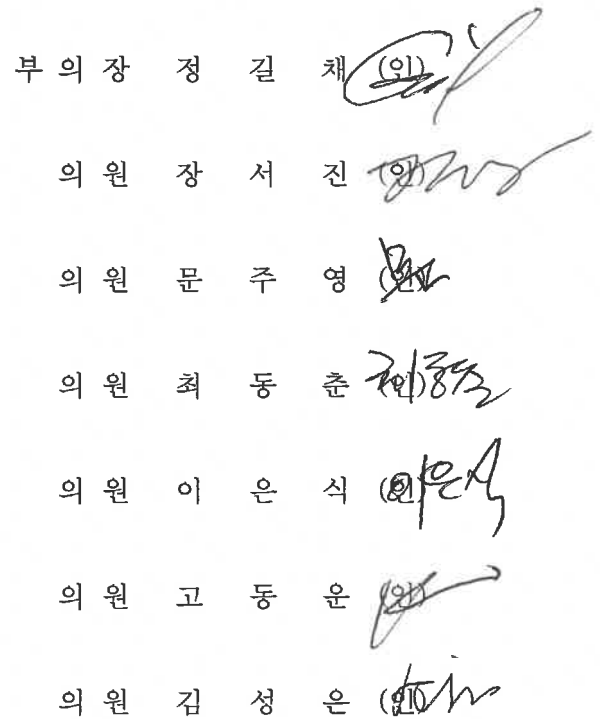 부의장 정 길 채 (인)
의원 장 서 진 (인)
의원 문 주 영 (인)
의원 최 동 춘 (인)
의원 이 은 식 (인) 이은식
의원 고 동 운 (인)
의원 김 성 은 (인)